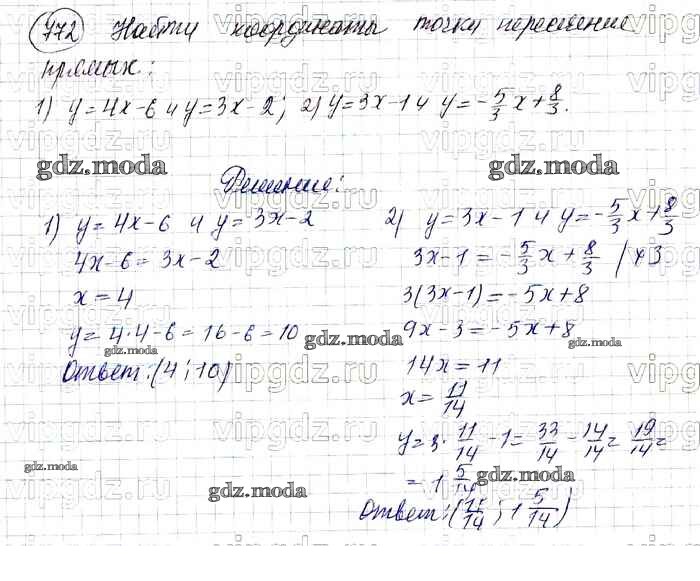 772 Найти координаты точки пересечение
прямых:
1) y=4x-6 и y=3x-2; 2) y=3x-1 и y=-5/3x+8/3.
gdz.moda gdz.moda
Решение:
1) y=4x-6 и y=3x-2
4x-6=3x-2
x=4
y=4·4-6=16-6=10
Ответ:(4;10)
2) y=3x-1 и y=-5/3x+8/3
3x-1=-5/3x+8/3 /×3
3(3x-1)=-5x+8
9x-3=-5x+8
14x=11
x=11/14
y=3·11/14-1=33/14-14/14=19/14=
=1 5/14
Ответ:(11/14;1 5/14)
gdz.moda
gdz.moda
gdz.moda
gdz.moda
gdz.moda
gdz.moda
vipgdz.ru